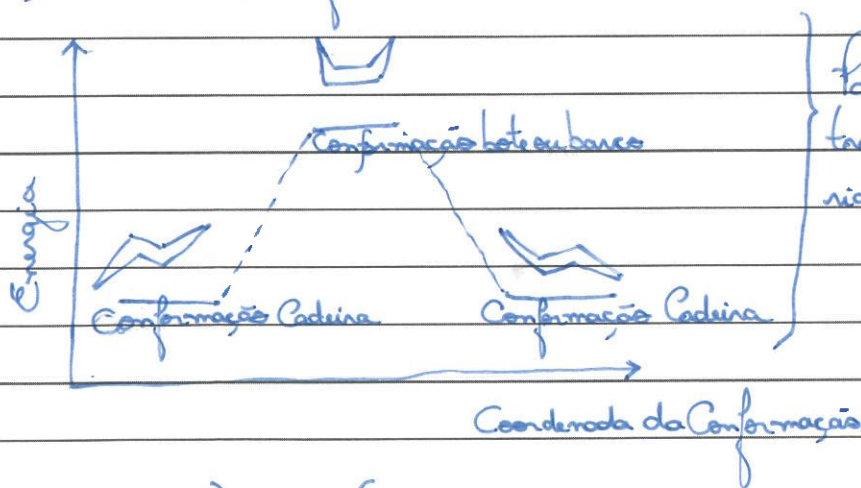 Conformação bote ou barco
Energia
Conformação Cadeira
Conformação Cadeira
Coordenada da Conformação